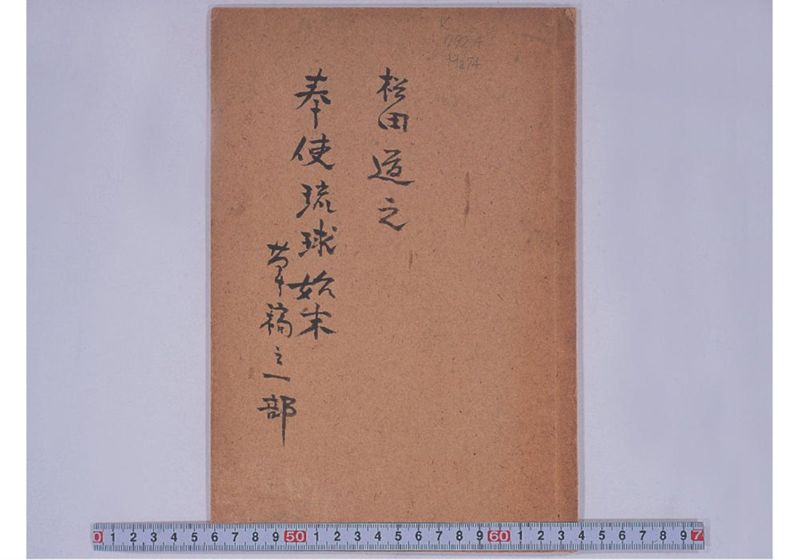 松田道之
奉使琉球始末
草稿之一部
K
0 1 2 3 4 5 6 7 8 9 50 1 2 3 4 5 6 7 8 9 60 1 2 3 4 5 6 7 8 9 7